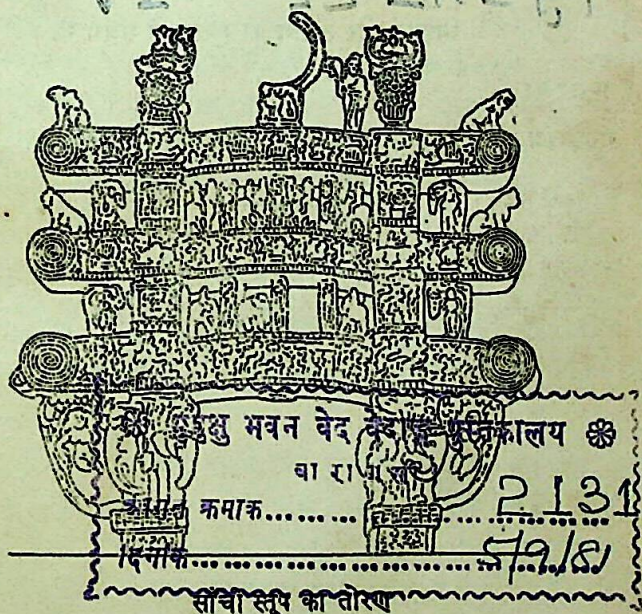 मुमुक्षु भवन वेद वेदाङ्ग पुस्तकालय
वाराणसी
आगत क्रमाक............ 2131
दिनांक............ 5/9/81
सांची स्तूप का तोरण